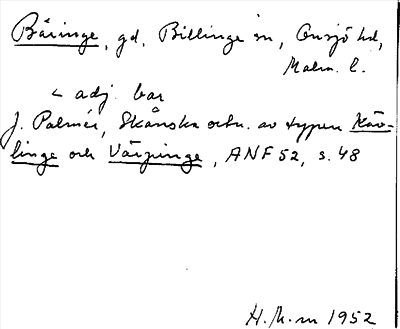 Båringe, gd, Billinge sn, Onsjö hd,
Malm. l.
< adj. bar
J. Palmér, Skånska ortn. av typen Käv-
linge och Värpinge, ANF 52, s. 48
H.K-m 1952